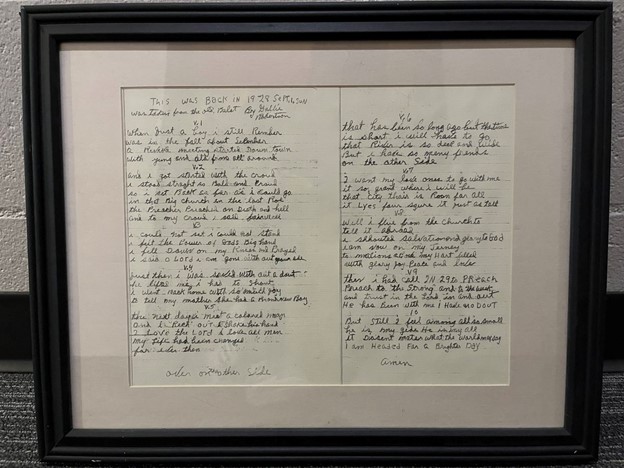 THIS WAS BACK IN 1928 Sept, SON
was taken from the old Balet By Goldie Robertson
V.1
When Just a boy i still Rember
was in the fall about September
a Revival meeting started Down town
with young and old from all around
V2
and i got started with the crowd
i stood straght so Bold and Proud
so i set Back as far as i could go
in that Big church in the last Row
the Preacher Preached on Death and hell
and to my crowd i said farewell
V3
i could not set i could not stand
i felt the Power of Gods Big hand
i fell Down on my knees and Prayed
i said O Lord i am gone with out your aid
V.4
Just then i was saved with out a doubt
he lifted me i had to shout
i went Back home with so much Joy
to tell my mother she had a brandnew Boy
V.5
the next day i met a colored man
and i Reach out to shake his hand
I Love the Lord I Love all men
my life had been changed
far ever then
over on other side
V,6
that has been so long ago but the time
is short i will have to go
that River is so deep and wide
But i have so many friends
on the other Side
V7
I want my love ones to go with me
it so grand where i will be
that City thair is Room for all
it Lyes four squire it Just as tall
V8
Well i flew from the Church to
tell it abroad
i shouted Salvation and glory to God
i am now on my Jurney
to mantions above my Hart filled
with glory Joy Peace and Love
V9
then i had call IN 29 to PReach
Preach to the Strong and to the weak
and trust in the Lord in and out
He has been with me I Have no DOUT
10
But still i feel among all so small
he is my gide He is my all
it Dosent matter what the world may say
I am Headed For a Brighter DAY
amen